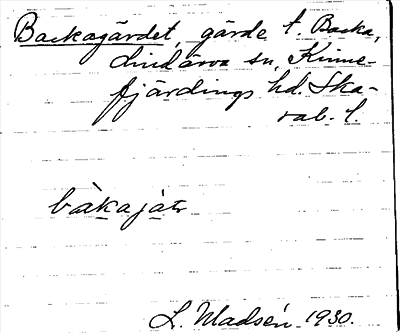 Backagärdet, gärde t. Backa,
Lindärva sn, Kinne-
fjärdings hd. Ska-
rab. l.
bàkajàtr
L. Madsén 1930.